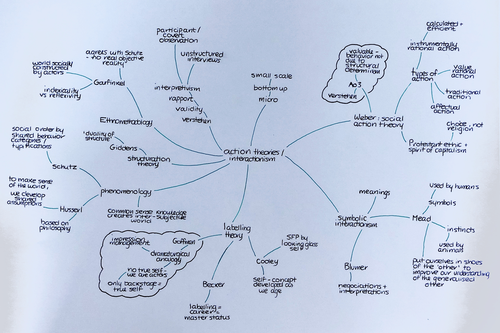 participant/
covert
observation
unstructured
interviews
interpretivism
rapport
validity
verstehen
agrees with Schutz
- no real objective
reality
world socially
constructed
by actors
Garfinkel
indexicality
vs reflexivity
Ethnomethodology
'duality of
structure'
Giddens
structuration
theory
social order by
shared behavior
categories /
typifications
Schutz
phenomenology
to make sense
of the world,
we develop
shared
assumptions
Husserl
based on
philosophy
common sense knowledge
creates inter-subjective
world
small scale
bottom up
micro
action theories /
interactionism
valuable -
behavior not
due to
structural
determinism
AO3
verstehen
Weber: social
action theory
calculated +
efficient
instrumentally
rational action
types of
action
value
rational
action
traditional
action
affectual
action
choice, not
religion
Protestant ethic +
spirit of capitalism
labelling
theory
impression
management
Goffman
dramaturgical
analogy
no true self -
we are actors
only backstage =
true self
Becker
labelling =
career =
master status
Cooley
SFP by
looking glass
self
self-concept
developed as
we age
symbolic
interactionism
meanings
Blumer
negotiations +
interpretations
Mead
used by humans
symbols
instincts
used by
animals
put ourselves in shoes
of the 'other' to
improve our understanding
of the generalised
other